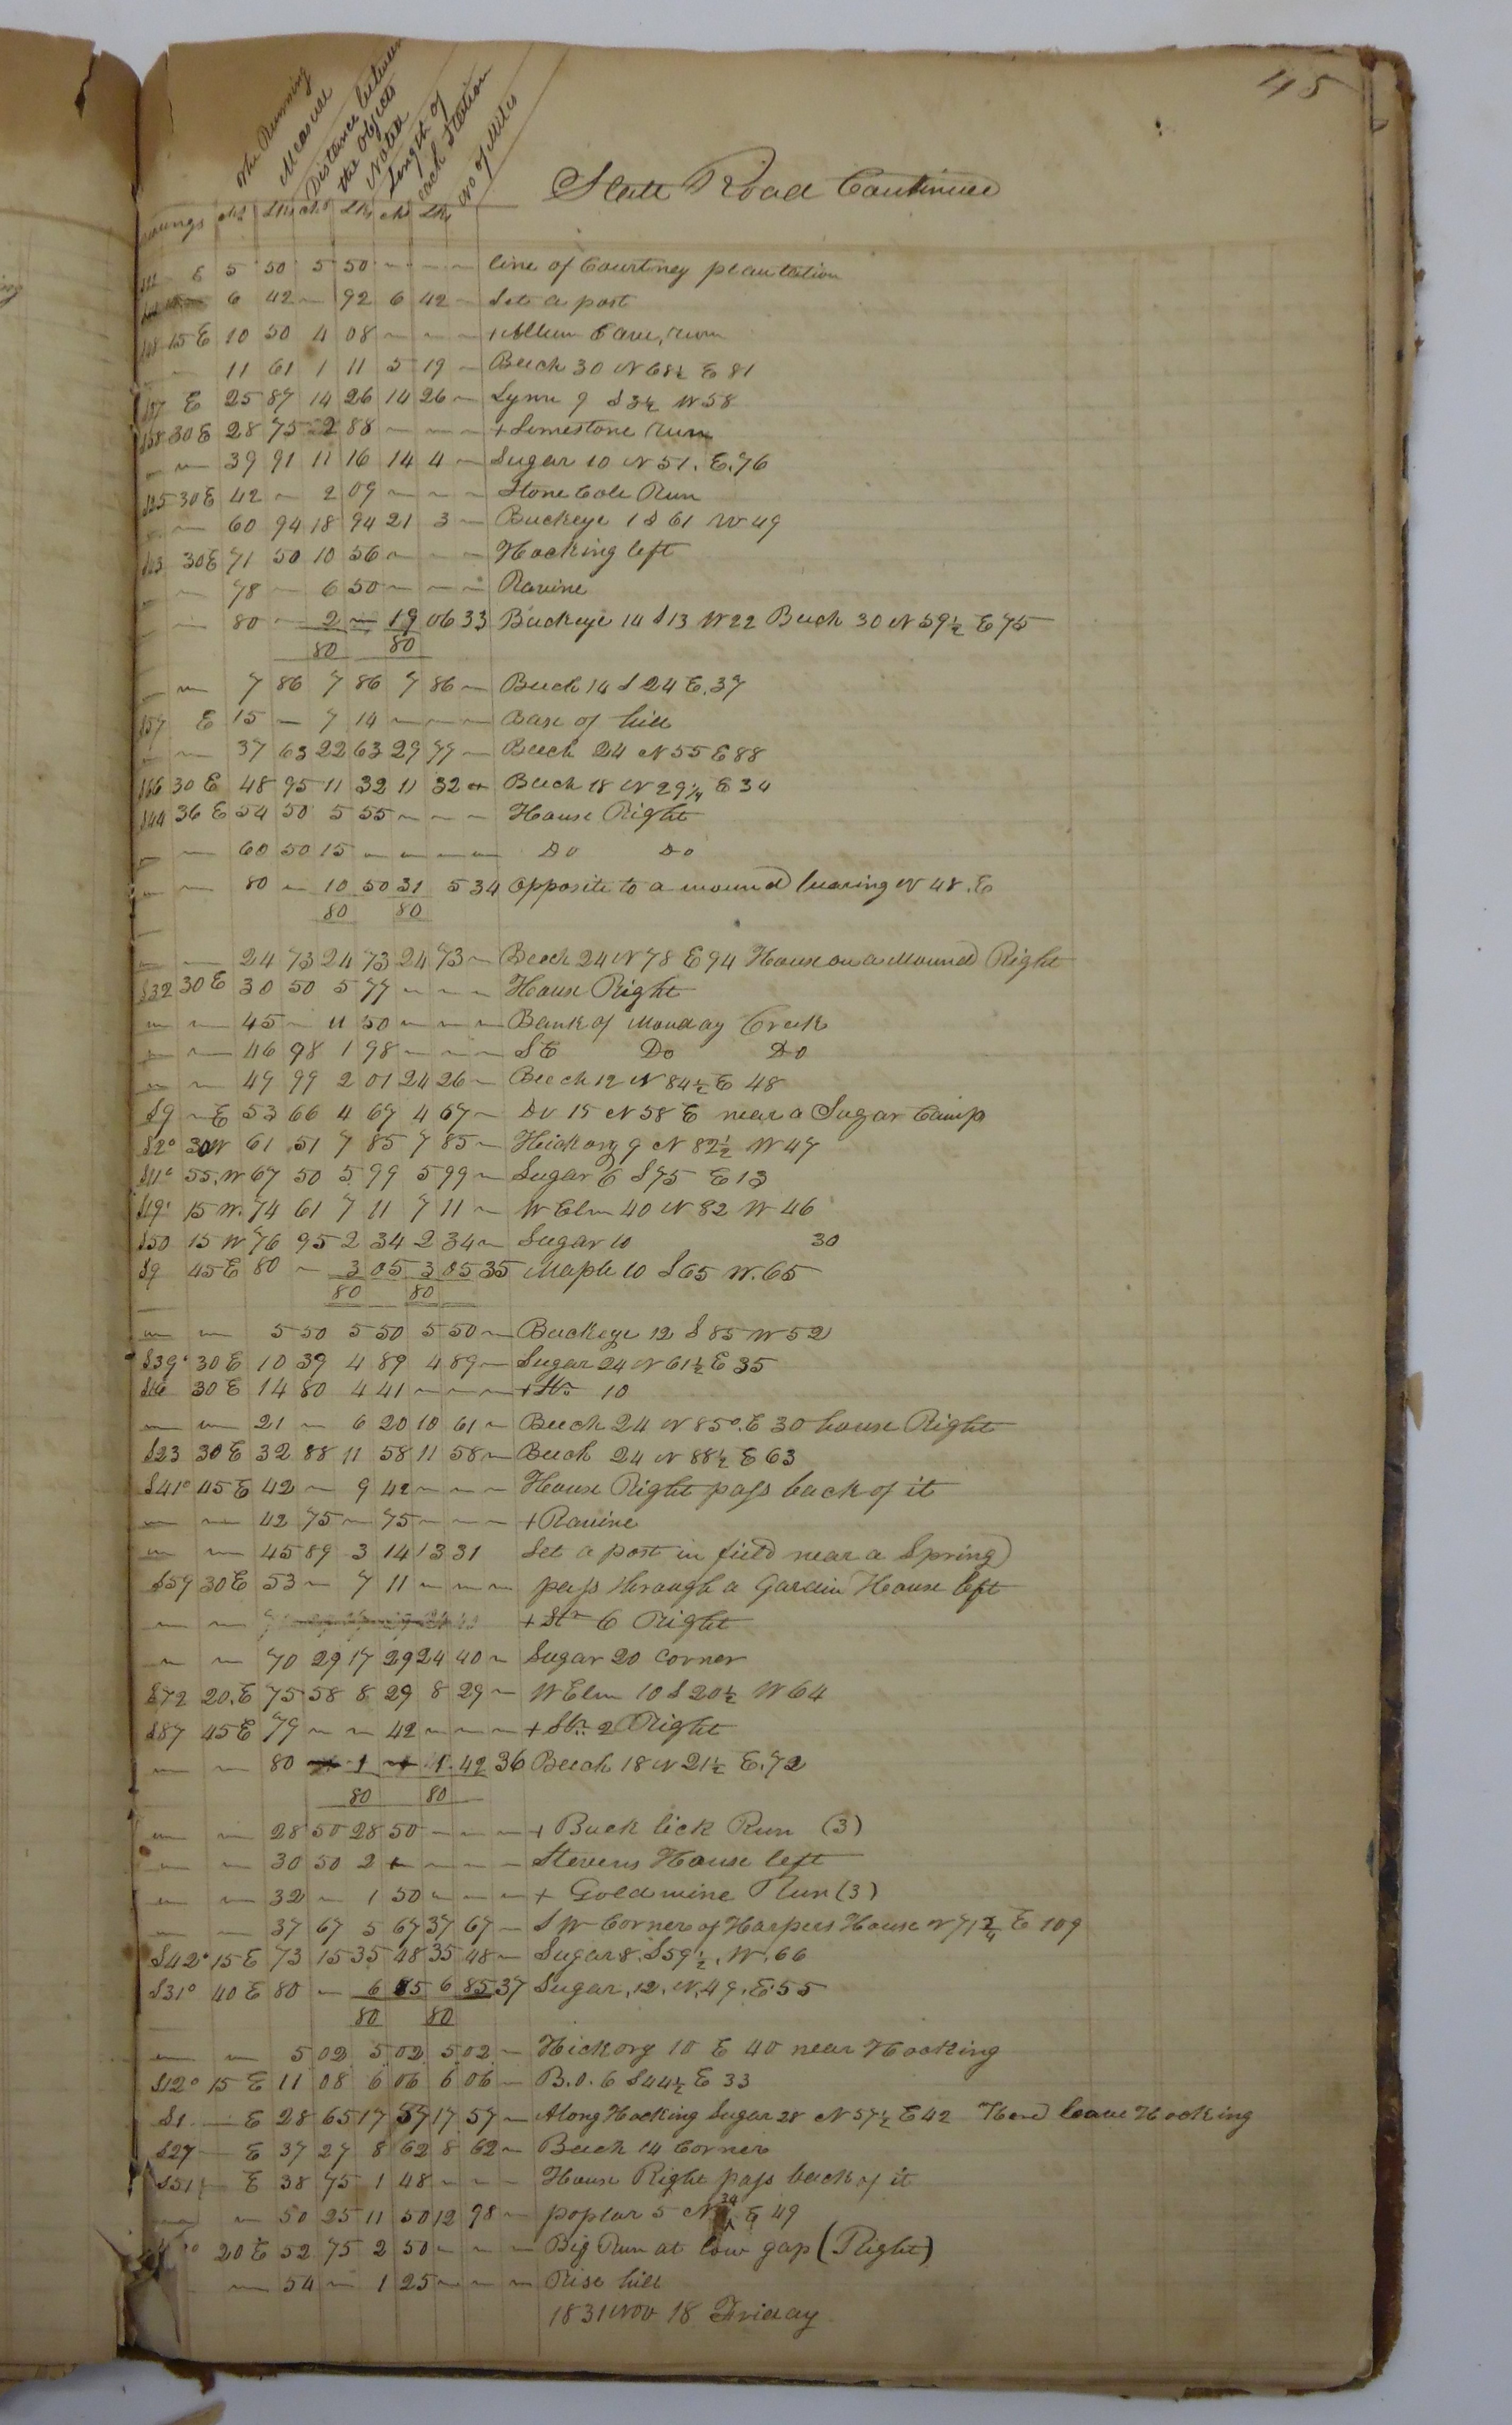 45
The Running Measure
Distance between the objects Noted
Length of each Station
No of Miles
State Road Continued
Chs Lks Chs Lks Chs Lks
E 5 50 5 50 — — — line of Courtney plantation
6 42 — 92 6 42 — Set a post
15 E 10 50 4 08 — — — + Run
— — 11 61 1 11 5 19 — Beech 30 N 68½ E 81
S57 E 25 87 14 26 14 26 — Lynn 9 S 3½ W 58
S58 30 E 28 75 2 88 — — — + Limestone Run
— — 39 91 11 16 14 4 — Sugar 10 N 51. E. 76
S25 30 E 42 — 2 09 — — — Stone Cole Run
— — 60 94 18 94 21 3 — Buckeye 1 S 61 W 49
30 E 71 50 10 56 — — — Hocking left
— — 78 — 6 50 — — — Ravine
— — 80 — 2 — 19 06 33 Buckeye 14 S 13 W 22 Beech 30 N 59½ E 75
80 80
— — 7 86 7 86 7 86 — Beech 14 S 24 E. 37
S57 E 15 — 7 14 — — — Base of hill
— — 37 63 22 63 29 77 — Beech 24 N 55 E 88
S66 30 E 48 95 11 32 11 32 — Beech 18 N 29¼ E 34
S44 36 E 54 50 5 55 — — — House Right
— — 60 50 15 — — — — Do Do
— — 80 — 10 50 31 5 34 Opposite to a mound bearing N 48. E
80 80
— — 24 73 24 73 24 73 — Beech 24 N 78 E 94 House on a Mound Right
S32 30 E 30 50 5 77 — — — House Right
— — 45 — 11 50 — — — Bank of Monday Creek
— — 46 98 1 98 — — — S E Do Do
— — 49 99 2 01 24 26 — Beech 12 N 84½ E 48
S9 — E 53 66 4 67 4 67 — Do 15 N 58 E near a Sugar Camp
S2° 30 W 61 51 7 85 7 85 — Hickory 9 N 82½ W 47
S11° 55. W 67 50 5 99 5 99 — Sugar 6 S 75 E 13
S19° 15 W. 74 61 7 11 7 11 — W Elm 40 N 82 W 46
S50 15 W 76 95 2 34 2 34 — Sugar 10 30
S9 45 E 80 — 3 05 3 05 35 Maple 10 S 65 W. 65
80 80
— — 5 50 5 50 5 50 — Buckeye 12 S 85 W 52
S39° 30 E 10 39 4 89 4 89 — Sugar 24 N 61½ E 35
S16 30 E 14 80 4 41 — — — + Str 10
— — 21 — 6 20 10 61 — Beech 24 N 85°. E 30 house Right
S23 30 E 32 88 11 58 11 58 — Beech 24 N 88½ E 63
S41° 45 E 42 — 9 42 — — — House Right pass back of it
— — 42 75 — 75 — — — + Ravine
— — 45 89 3 14 13 31 Set a post in field near a Spring
S59 30 E 53 — 7 11 — — — pass through a Gardin House left
— — + Str 6 Right
— — 70 29 17 29 24 40 — Sugar 20 corner
S72 20. E 75 58 8 29 8 29 — W Elm 10 S 20½ W 64
S87 45 E 79 — — 42 — — — + Str. 2 Right
— — 80 — 1 — 1. 42 36 Beech 18 N 21½ E. 72
80 80
— — 28 50 28 50 — — — + Buck lick Run (3)
— — 30 50 2 — — — — Stevens House left
— — 32 — 1 50 — — — + Goldmine Run (3)
— — 37 67 5 67 37 67 — S W Corner of Harpers House N 71¾ E 109
S42° 15 E 73 15 35 48 35 48 — Sugar 8. S 59½. W. 66
S31° 40 E 80 — 6 85 6 85 37 Sugar. 12. N. 49. E 55
80 80
— — 5 02 5 02 5 02 — Hickory 10 E 40 near Hocking
S12° 15 E 11 08 6 06 6 06 — B. O. 6 S 44½ E 33
S1 — E 28 65 17 57 17 57 — Along Hocking Sugar 28 N 57½ E 42 There leave Hocking
S27 — E 37 27 8 62 8 62 — Beech 14 Corner
S51 — E 38 75 1 48 — — — House Right pass back of it
— — 50 25 11 50 12 98 — poplar 5 N 34 E 49
20 E 52 75 2 50 — — — Big Run at low gap (Right)
— 54 — 1 25 — — — Rise hill
1831 Nov 18 Friday